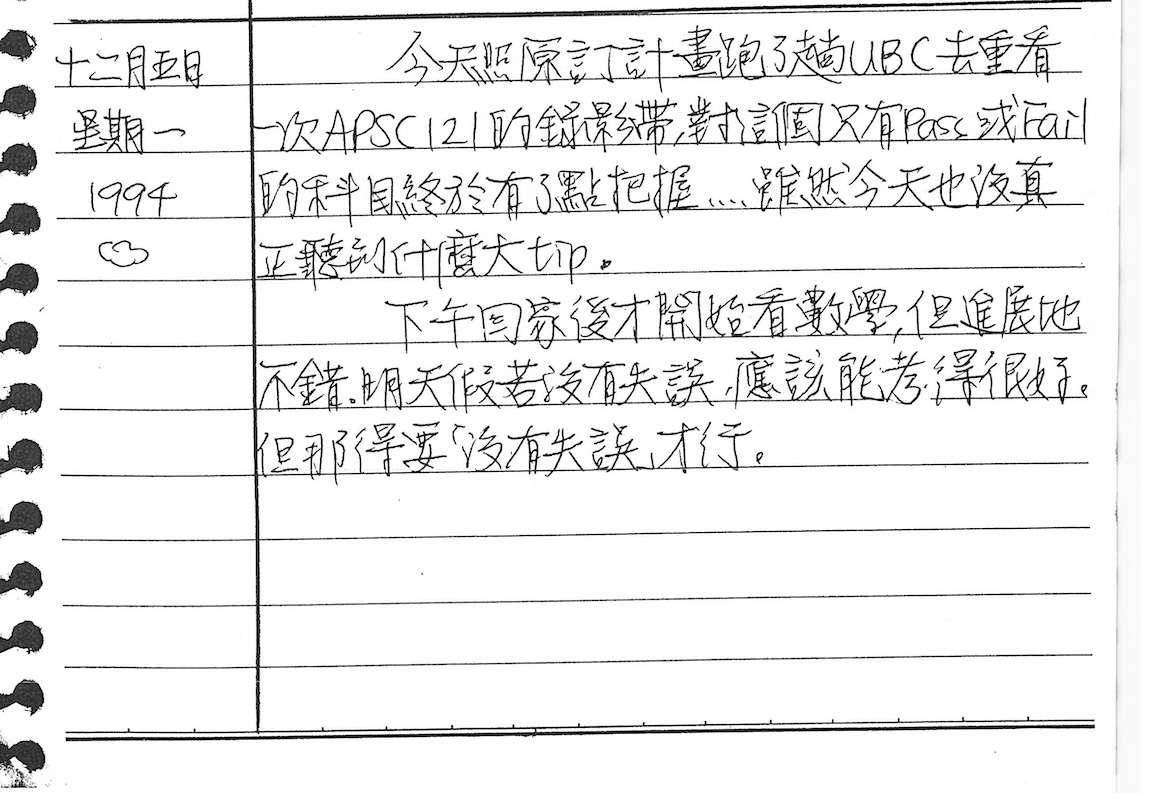 十二月五日
星期一
1994
今天照原訂計畫跑了趟UBC去重看
一次APSC121的錄影帶,對這個只有Pass或Fail
的科目終於有了點把握....雖然今天也沒真
正聽到什麼大tip。
下午回家後才開始看數學,但進展地
不錯。明天假若沒有失誤,應該能考得很好。
但那得要「沒有失誤」才行。